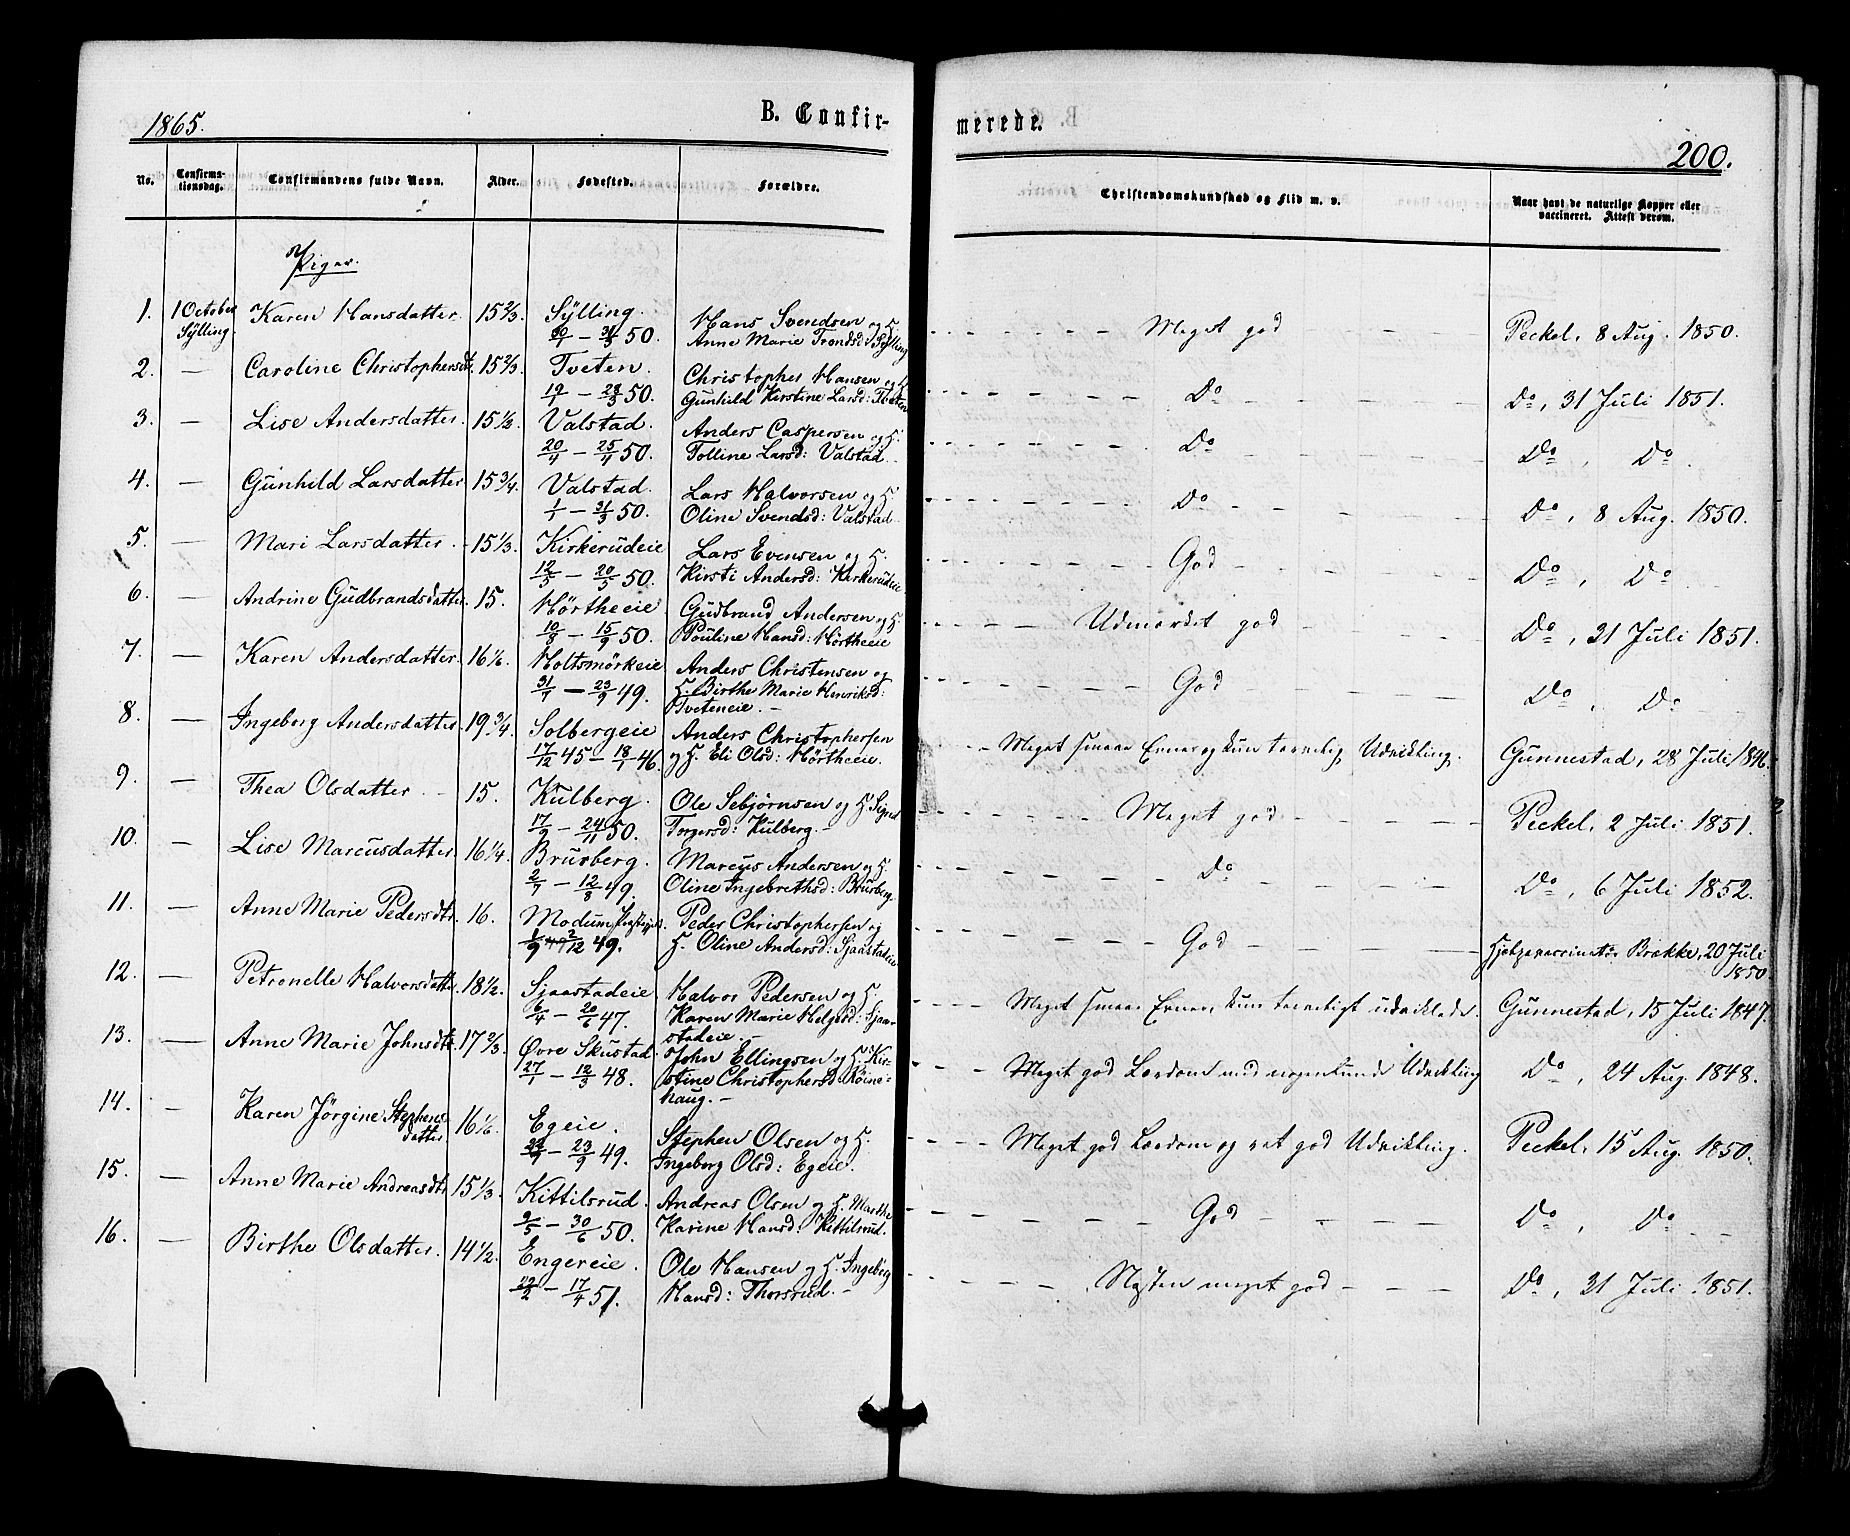 1865.
B. Confir-
merede.
200.
No. Confirma-tionsdag. Confirmandens fulde Navn. Alder. Fødested. Forældre. Christendomskundskab og Flid m. v. Naar havt de naturlige Kopper eller vaccineret. Attest derom.
Piger.
1. 1 October Sylling. Karen Hansdatter. 15 2/3. Sylling. Hans Svendsen og H. Meget god Peckel, 8 Aug. 1850.
– 31/3 50. Anne Marie Trondsd: Sylling
2. — Caroline Christophersdt. 15 2/3. Tveten. Christopher Hansen og H. Do Do, 31 Juli 1851.
19/1 – 28/3 50. Gunhild Kirstine Larsd: Tveten
3. — Lise Andersdatter. 15 1/2. Valstad. Anders Caspersen og H. Do Do, Do.
20/4 – 25/4 50. Tolline Larsd: Valstad.
4. — Gunhild Larsdatter 15 3/4. Valstad. Lars Halvorsen og H. Do Do, 8 Aug. 1850.
1/1 – 31/3 50. Oline Svendsd: Valstad.
5. — Mari Larsdatter. 15 1/3. Kirkerudeie Lars Evensen og H. God Do, Do
12/5 – 20/5 50. Kirsti Andersd: Kirkerudeie
6. — Andrine Gudbrandsdatter. 15. Hörtheeie Gudbrand Andersen og H. Udmærket god Do, 21 Juli 1851.
10/8 – 15/9 50. Pouline Hansd: Hörtheeie
7. — Karen Andersdatter. 16 1/6. Holtsmörkeie Anders Christensen og God Do, Do
31/7 – 23/9 49. H. Birthe Marie Henriksd: Tveteneie.
8. — Ingeborg Andersdatter. 19 3/4. Solbergeie Anders Christophersen Meget smaae Evner og kun tarvelig Udvikling. Gunnestad, 28 Juli 1846.
17/12 45 – 18/1 46. og H. Eli Olsd: Hörtheeie.
9. — Thea Olsdatter. 15. Kulberg. Ole Sebjørnsen og H. Sigrid Meget god Peckel, 2 Juli 1851.
17/9 – 24/11 50. Torgersd: Kulberg.
10. — Lise Marcusdatter 16 1/4. Brurberg. Marcus Andersen og H. Do Do, 6 Juli 1852.
2/7 – 12/8 49. Oline Ingebrethsd: Brurberg.
11. — Anne Marie Pedersdt. 16. Modum Præstegj. Peder Christophersen og God Hjelpevaccinatør Brække, 20 Juli 1850
1/9 2/12 49. H. Oline Andersd: Sjaastadeie
12. — Petronelle Halvorsdatter. 18 1/2. Sjaastadeie Halvor Pedersen og H. Meget smaae Evner, kun tarveligt udviklede. Gunnestad, 15 Juli 1847.
6/4 – 20/6 47. Karen Marie Helgesd: Sjaa-stadeie.
13. — Anne Marie Johnsdt. 17 2/3. Øvre Skustad. John Ellingsen og H. Kir- Meget god Lærdom med nogenlunde Udvikling Do, 24 Aug. 1848.
27/1 – 12/3 48. stine Christophersd: haug.
14. — Karen Jörgine Stephens-datter 16 1/6. Egeie. Stephen Olsen og H. Meget god Lærdom og ret god Udvikling. Peckel, 15 Aug. 1850.
– 23/9 49. Ingeborg Olsd: Egeie.
15. — Anne Marie Andreasdt. 15 1/3. Kittilsrud. Andreas Olsen og H. Marthe God Do, Do
9/5 – 30/6 50. Karine Hansd: Kittilsrud.
16. — Birthe Olsdatter. 14 1/2. Engereie. Ole Hansen og H. Ingeborg Næsten meget god Do, 21 Juli 1851.
– 17/4 51. Hansd: Thorsrud.